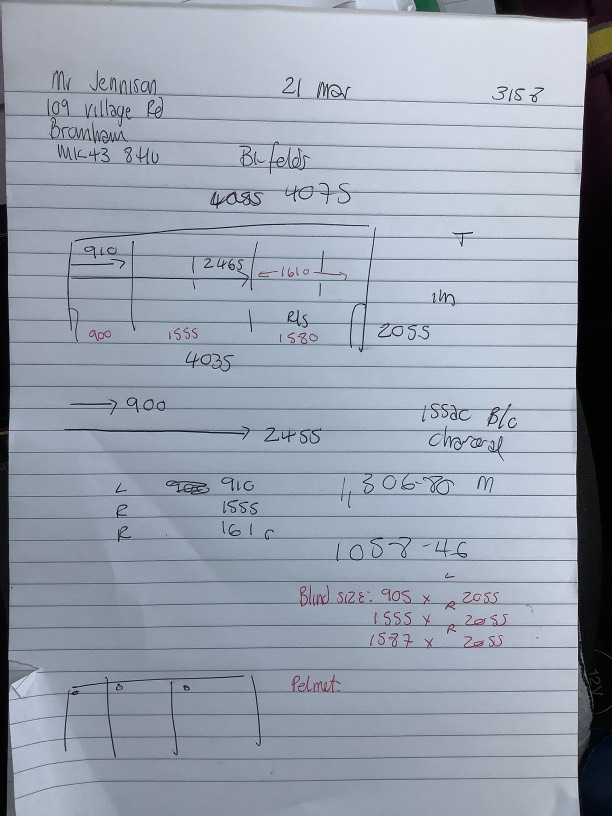 Mr Jennison 21 Mar 3158
109 Village Rd
Bromham
MK43 8HU Bi-folds
4085 4075
910 T
2465 1610
1m
R/S
900 1555 1580 2055
4035
900 Issac B/c
2455 charcoal
L 910 1,306-80 M
R 1555
R 1610
1058-46
L
Blind size: 905 x R 2055
1555 x R 2055
1587 x 2055
Pelmet: